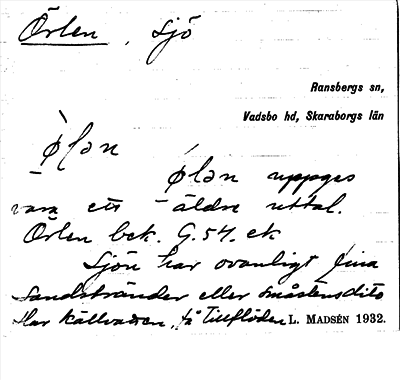 Örlen, sjö
Ransbergs sn,
Vadsbo hd, Skaraborgs län
ø̀lən
ølən uppges
vara ett äldre uttal.
Örlen bek. G.54. ek
Sjön har ovanligt fina
sandstränder eller småstensdito
Har källvatten, få tillflöden L. MADSÉN 1932.